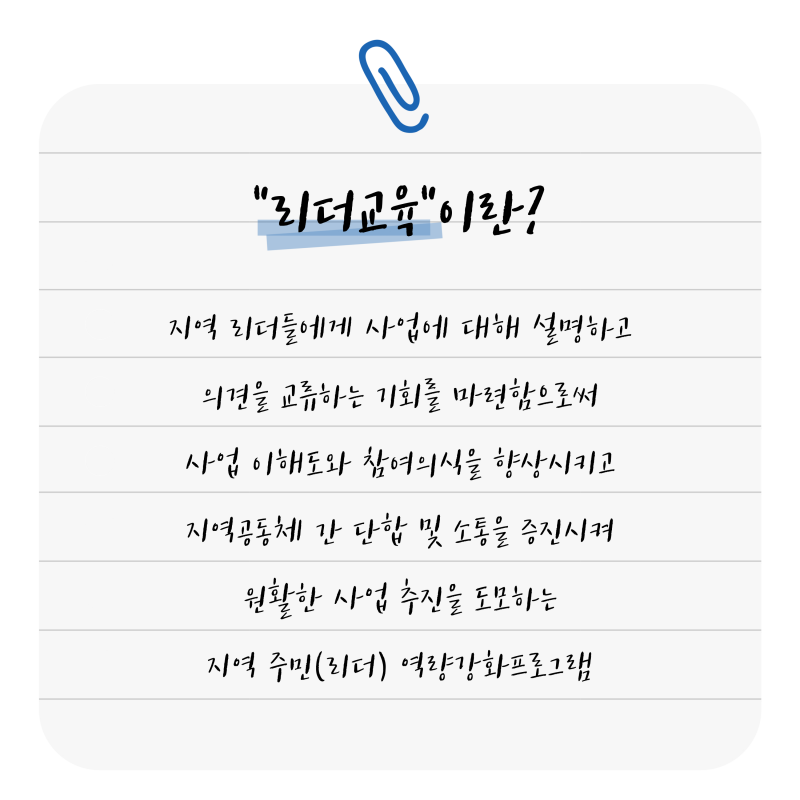 "리더교육"이란?
지역 리더들에게 사업에 대해 설명하고
의견을 교류하는 기회를 마련함으로써
사업 이해도와 참여의식을 향상시키고
지역공동체 간 단합 및 소통을 증진시켜
원활한 사업 추진을 도모하는
지역 주민(리더) 역량강화프로그램